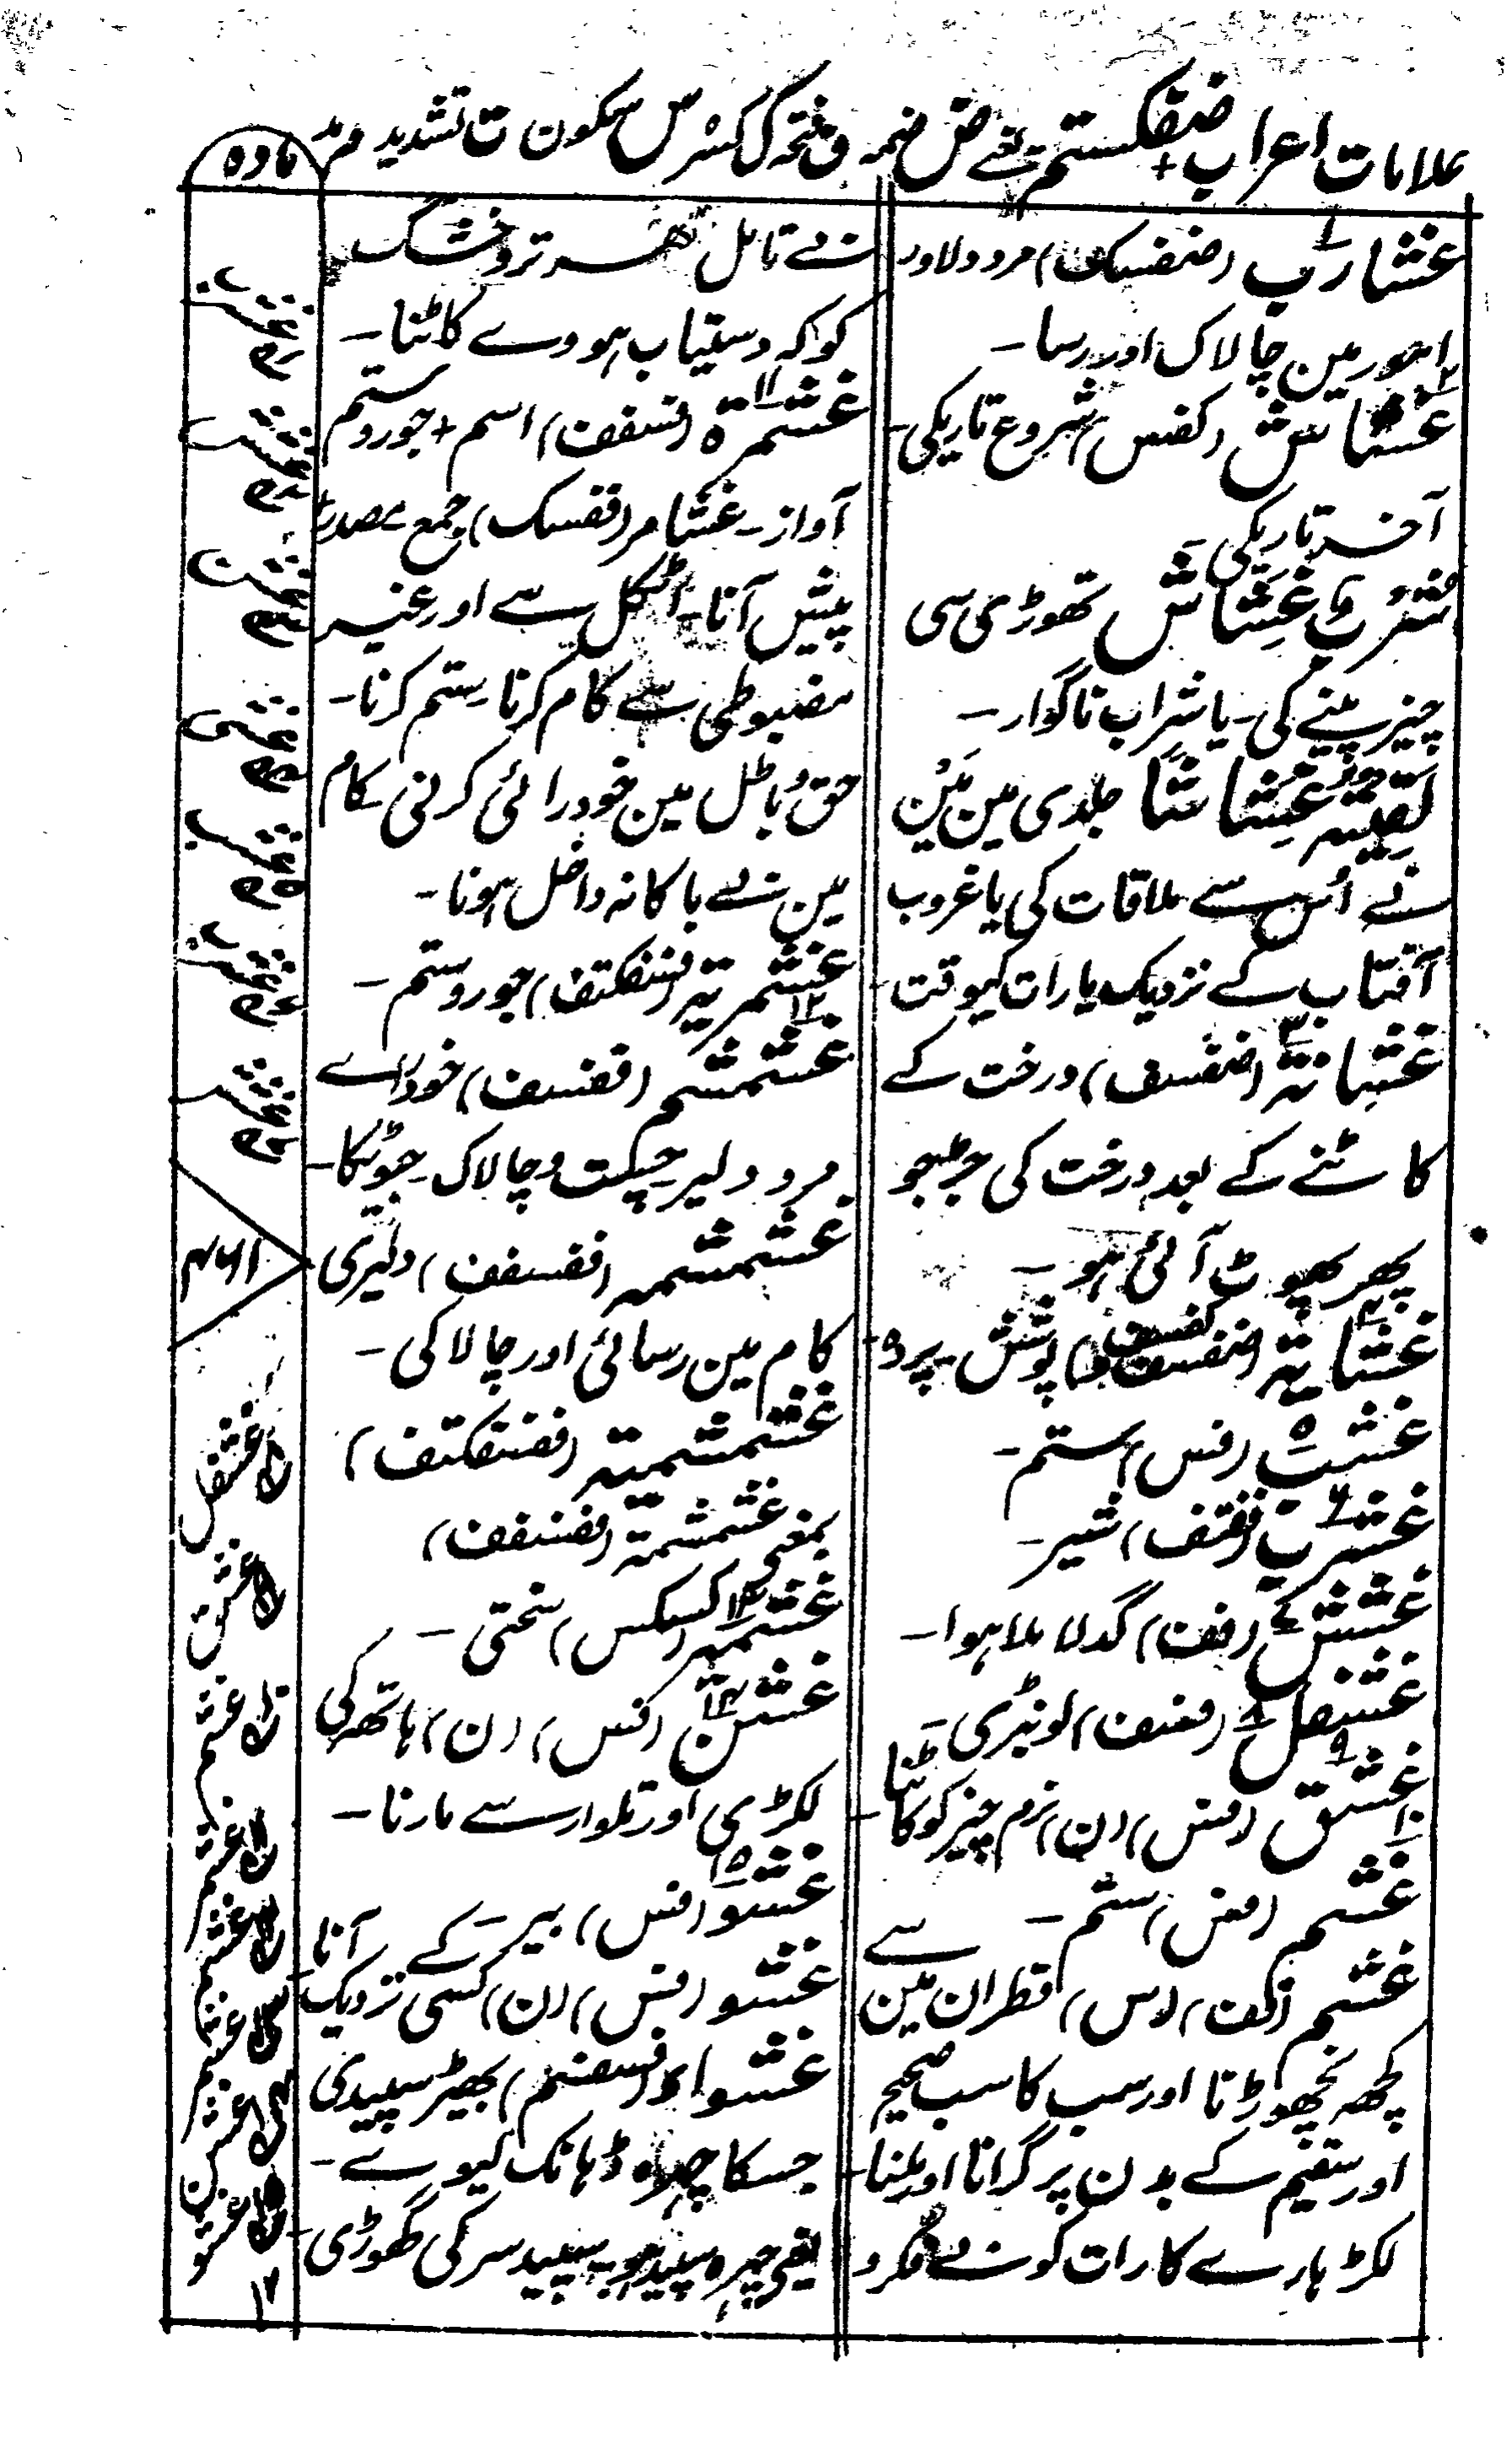 علامات اعراب + ضفکستم یعنے ض ضمہ ف فتحہ ک کسر س سکون ت تشدید م مد
مادہ
غشارب (ضفسک) مرد دلاور
امور مین چالاک اور رسا -
غشاش (کفس) شروع تاریکی -
آخر تاریکی -
شُرْبٌ غِشَاشٌ تھوڑی سی
چیز پینے کی - یا شراب ناگوار -
لَقِیتُہٗ غِشَاشًا جلدی مین مَیْن
نے اُس سے ملاقات کی یا غروب
آفتاب کے نزدیک یا رات کیوقت -
غشانۃ (ضفسف) درخت کے
کاٹنے کے بعد درخت کی جڑ جو
پھر پھوٹ آئی ہو -
غشایۃ (ضفسف) پوشش - پردہ -
غشب (فس) ستم -
غشرب (ففتف) شیر -
غشش (فف) گدلا ملا ہوا -
غشفل (فسف) لونبڑی -
غشق (فس) (ن) نرم چیز کو کاٹنا -
غشم (فس) ستم -
غشم (فک) (س) قطران مین سے
کچھ نچھوڑنا اور سب کا سب صحیح
اور سقیم کے بدن پر گرانا اور ملنا -
لکڑہارے کا رات کو بے فکر و
بے تامل تر و خشک
کو کہ دستیاب ہووے کاٹنا -
غشمرۃ (فسفف) اسم + جور و ستم
آواز - غشامر (ففسک) جمع - مصدر +
پیش آنا - اٹکل سے اور غیر
مضبوطی سے کام کرنا ستم کرنا -
حق و باطل مین خودرائی کرنی - کام
مین بے باکانہ داخل ہونا -
غشمریۃ جور و ستم -
غشمشم (ففسف) خودراے
مرد دلیر چست و چالاک -
غشمشمہ (ففسفف) دلیری
کام مین رسائی اور چالاکی -
غشمشمیتہ
بمعنی غشمشمۃ (ففسفف)
غشمہ سختی -
غشن (فس) (ن) ہاتھ کی
لکڑی اور تلوار سے مارنا -
غشو (فس) بیر -
غشو (فس) (ن) کسی کے نزدیک آنا -
غشواء (فسفم) بھیڑ سپیدی
جسکا چہرہ ڈہانک لیوے -
یعنی چہرہ سپید ہو - سپید سر کی گھوڑی -
غشفل
غشق
غشم
غشم
غشم
غشم
غشن
غشو
۱۲